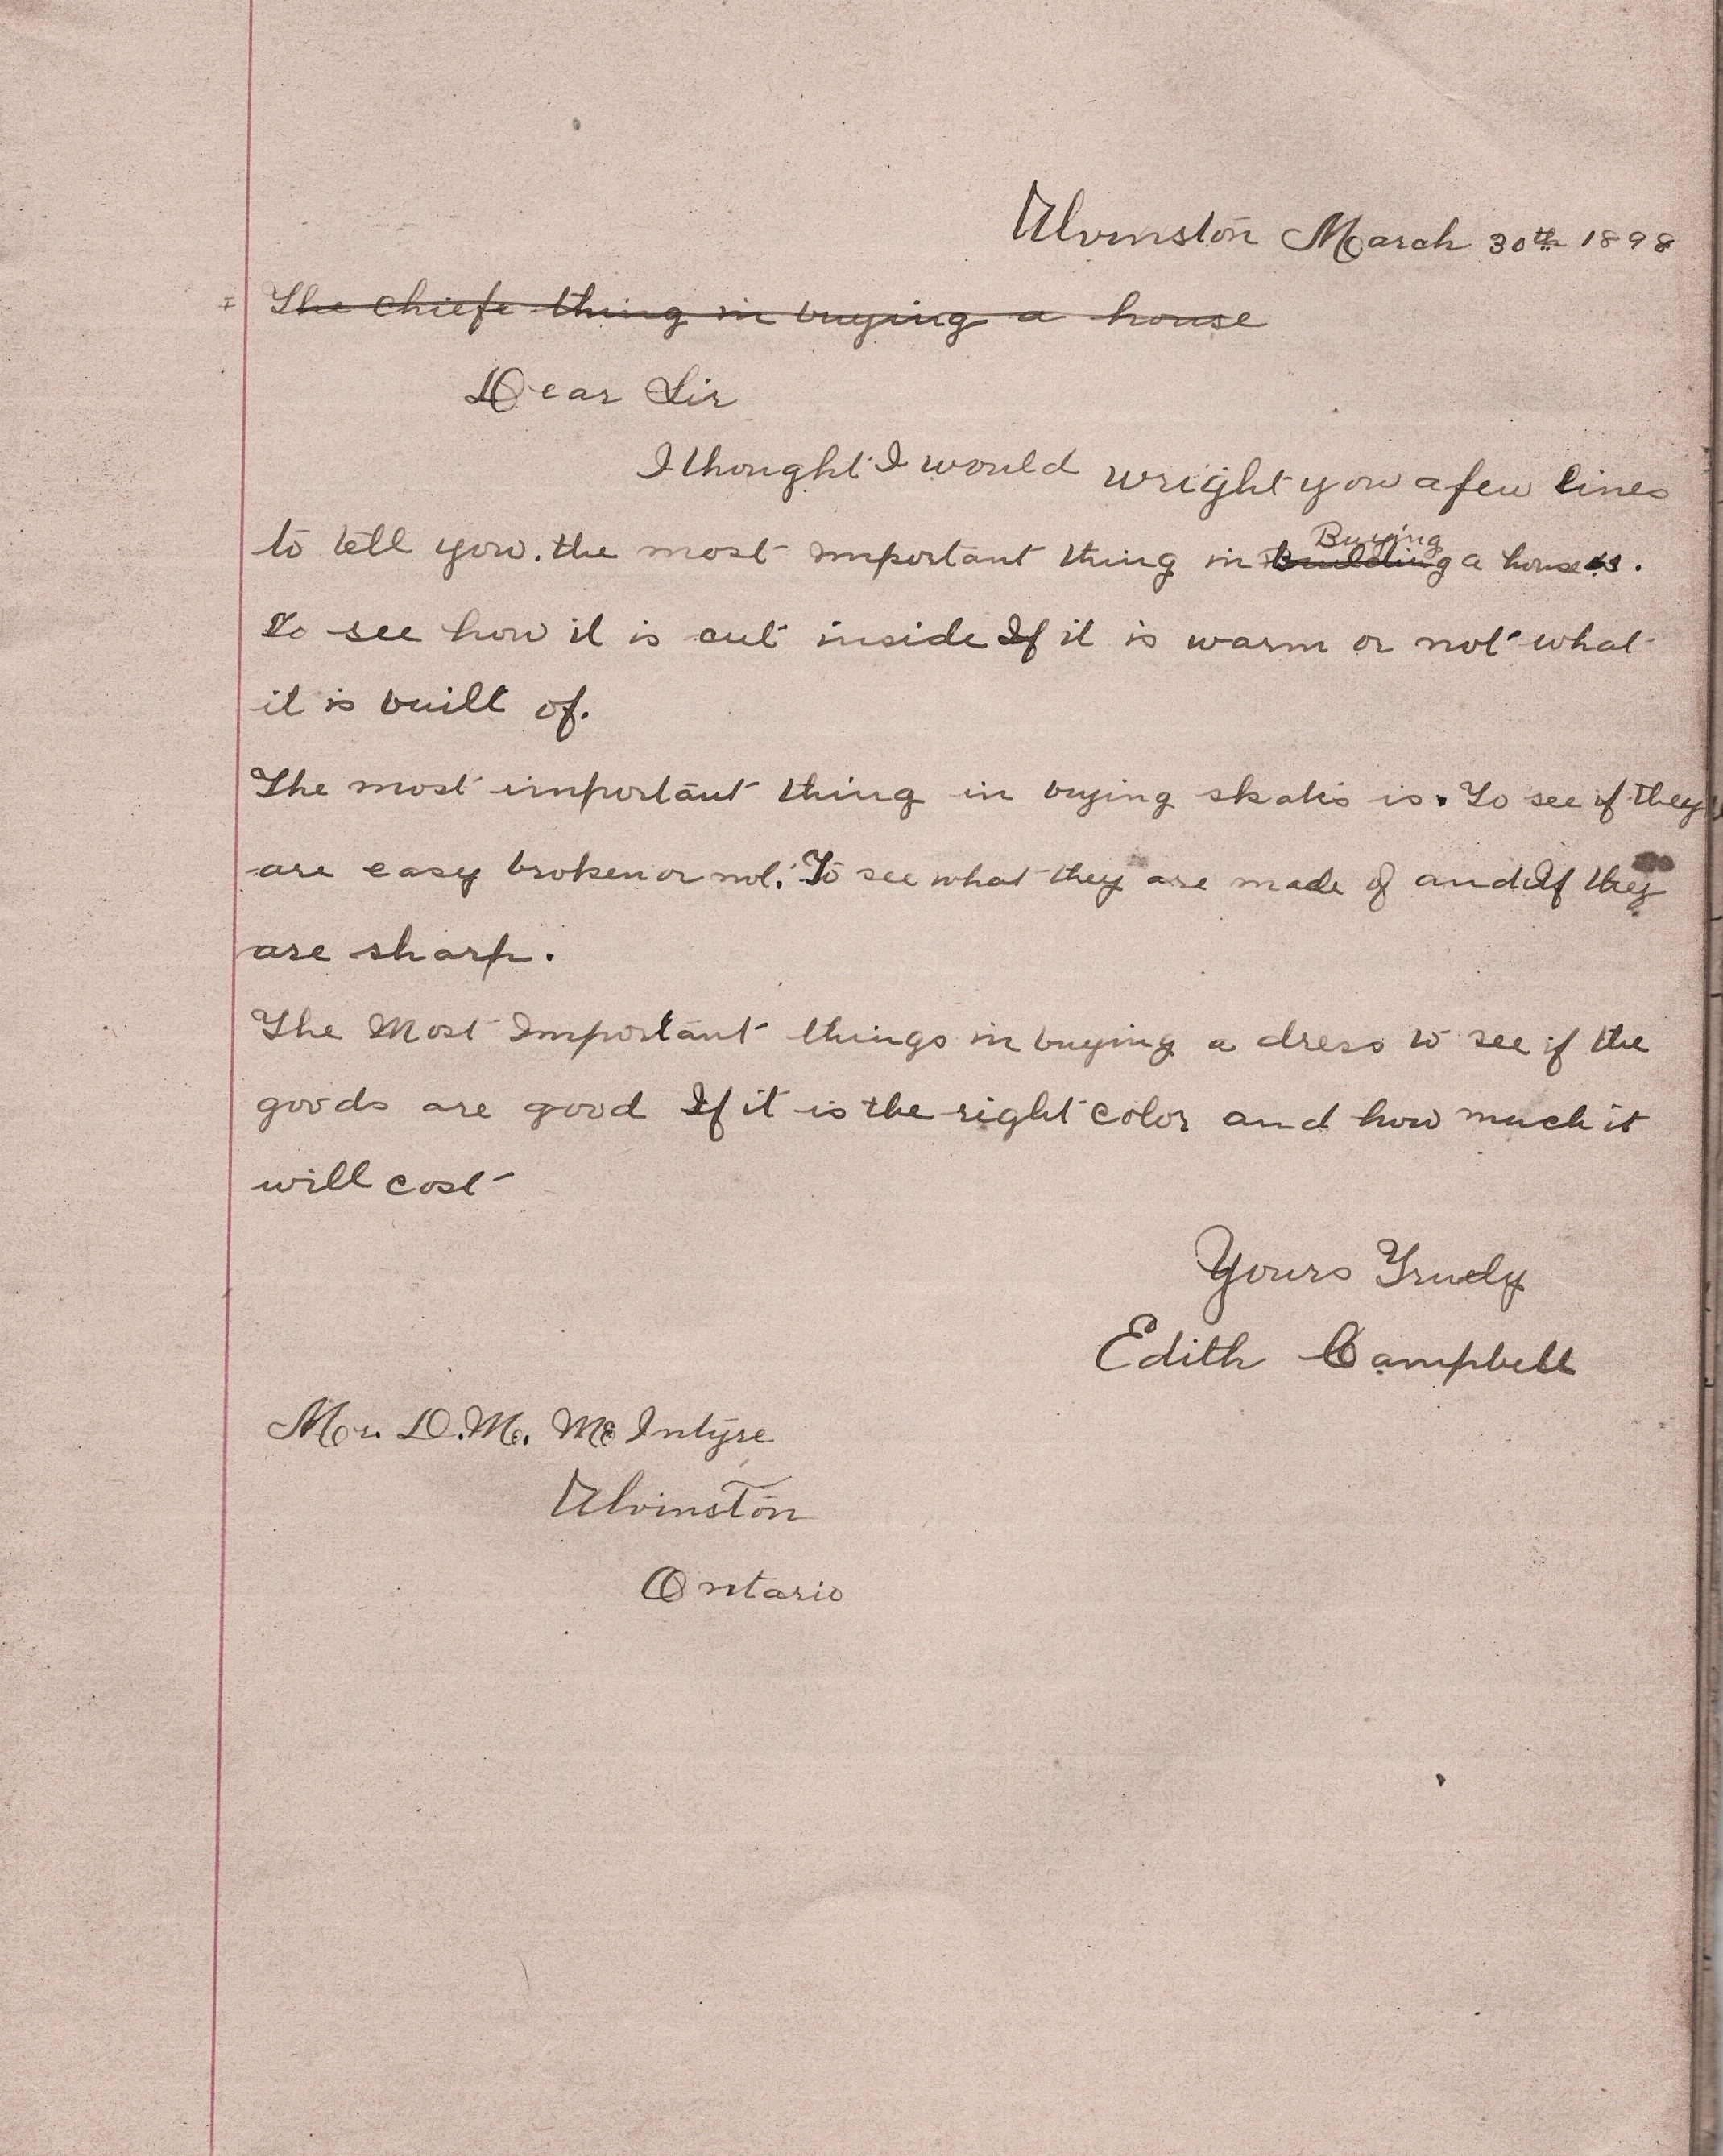 Alvinston March 30th 1898
The chiefe thing in buying a house
Dear Sir
I thought I would wright you a few lines
to tell you. the most important thing in building Buying a house is.
To see how it is cut inside If it is warm or not what
it is built of.
The most important thing in buying skates is. To see if they
are easy broken or not. To see what they are made of and If they
are sharp.
The Most Important things in buying a dress to see if the
goods are good If it is the right color and how much it
will cost
Yours Truely
Edith Campbell
Mr. D.M. McIntyre
Alvinston
Ontario